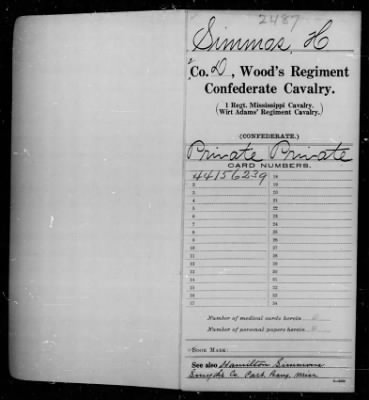 2487
Simmos, H
Co. D, Wood's Regiment
Confederate Cavalry.
(1 Regt. Mississippi Cavalry.
Wirt Adams' Regiment Cavalry.)
(CONFEDERATE.)
Private Private
CARD NUMBERS.
44156239 18
2 19
3 20
4 21
5 22
6 23
7 24
8 25
9 26
10 27
11 28
12 29
13 30
14 31
15 32
16 33
17 34
Number of medical cards herein 0
Number of personal papers herein 0
BOOK MARK:
See also Hamilton Simmons
Co. Part. Rang. Miss